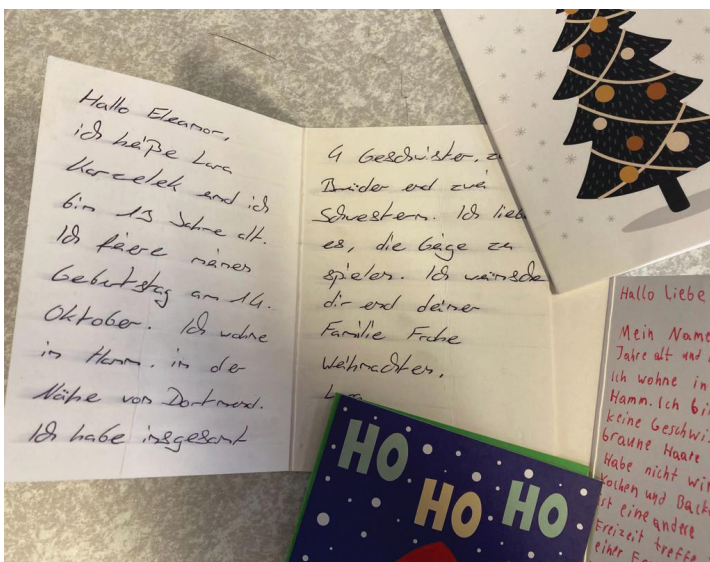 Hallo Eleanor,
ich heiße Lara
und ich
bin 13 Jahre alt.
Ich feiere meinen
Geburtstag am 14.
Oktober. Ich wohne
in Hamm. in der
Nähe von Dortmund.
Ich habe insgesamt
4 Geschwister,
Brüder und zwei
Schwestern. Ich liebe
es, die Geige zu
spielen. Ich wünsche
dir und deiner
Familie Frohe
Weihnachten,
Lara
HO
HO HO
Hallo Liebe
Mein Name
Jahre alt und
Ich wohne in
Hamm. Ich bin
keine
braune Haare
Habe nicht
Kochen und
ist eine andere
Freizeit
einer